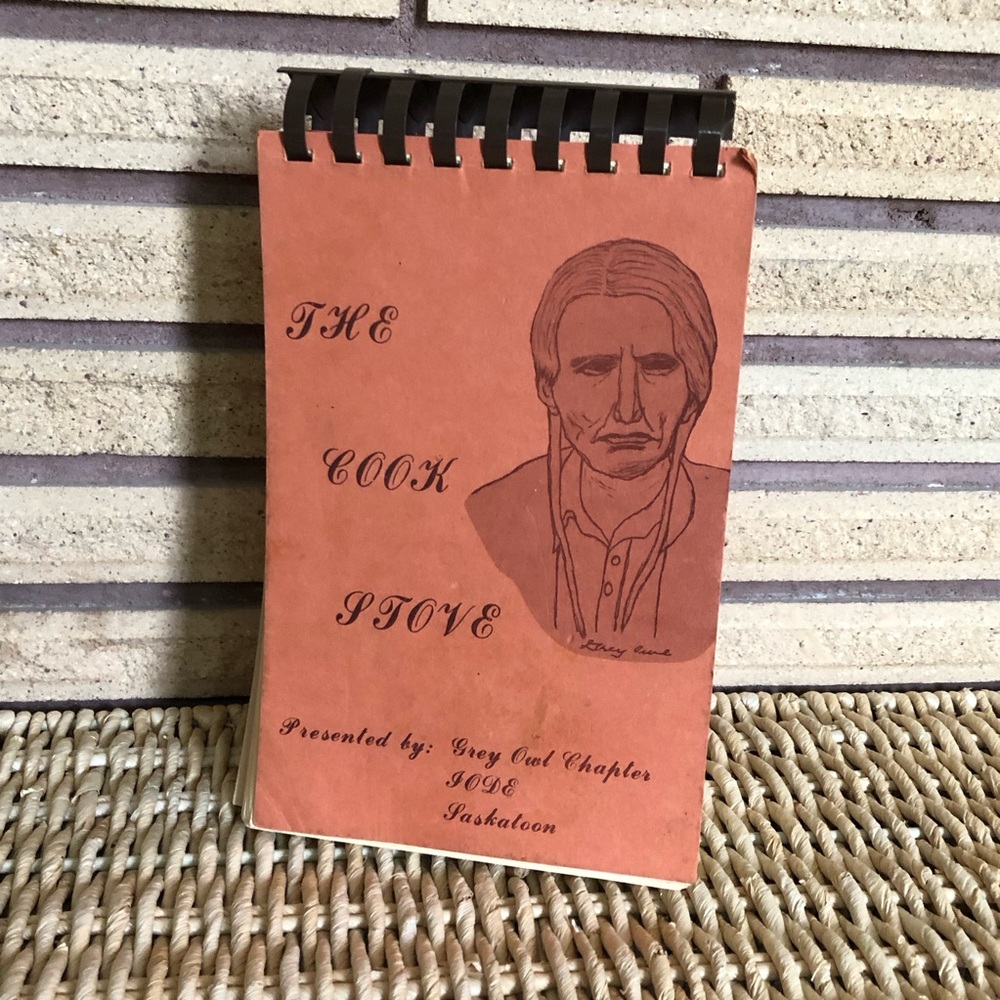 THE
COOK
STOVE
Grey Owl
Presented by: Grey Owl Chapter
IODE
Saskatoon